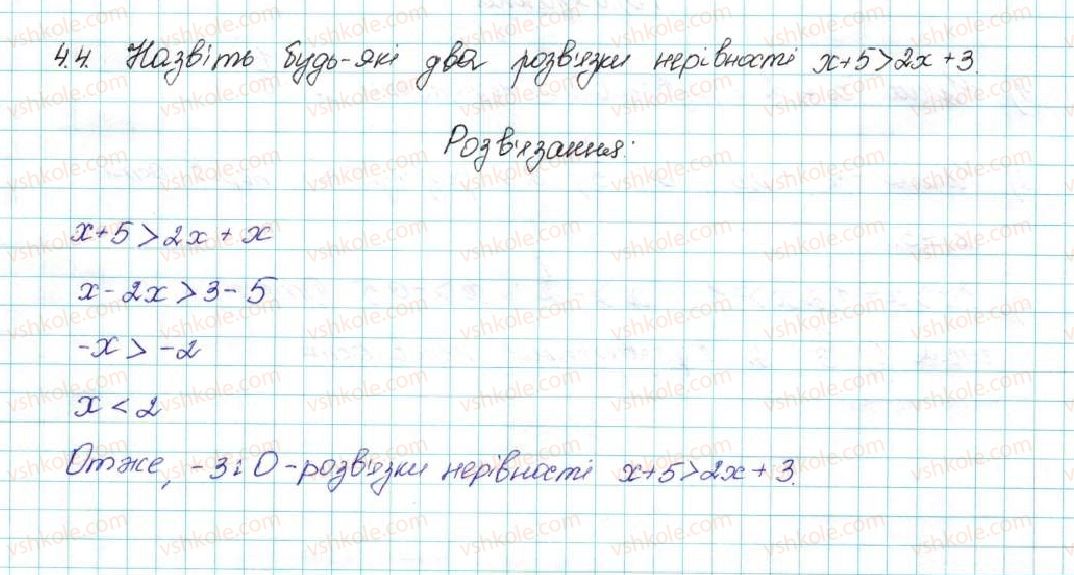 4.4. Назвіть будь-які два розв'язки нерівності x+5>2x+3.
Розв'язання:
x+5>2x+x
x-2x>3-5
-x>-2
x<2
Отже, -3 і 0 - розв'язки нерівності x+5>2x+3.